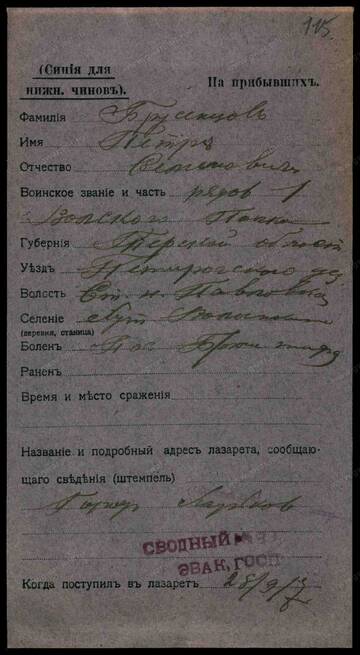 115.
(Синія для
нижн. чиновъ).
На прибывшихъ.
Фамилія Брусенцовъ
Имя Петръ
Отчество Семеновичъ
Воинское званіе и часть рядов 1
Волского Полка
Губернія Терской област
Уѣздъ
Волость Ст. н. Павловка
Селеніе Хут
(деревня, станица)
Боленъ
Раненъ
Время и мѣсто сраженія
Названіе и подробный адресъ лазарета, сообщаю-
щаго свѣдѣнія (штемпель)
Город Харьков
СВОДНЫЙ
ЭВАК. ГОСП
Когда поступилъ въ лазаретъ 28/9/17